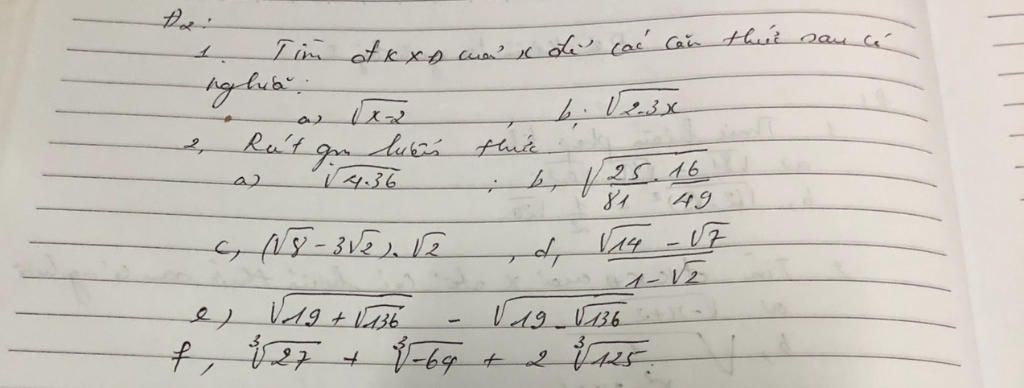 Đ2:
1. Tìm đkxđ của x để các căn thức sau có
nghĩa:
a) √(x-2) , b. √(2-3x)
2, Rút gọn biểu thức
a) √(4.36) ; b, √(25/81 . 16/49)
c, (√8 - 3√2).√2 , d, (√14 - √7)/(1-√2)
e) √(19 + √136) - √(19 - √136)
f, ∛27 + ∛-64 + 2 ∛125.